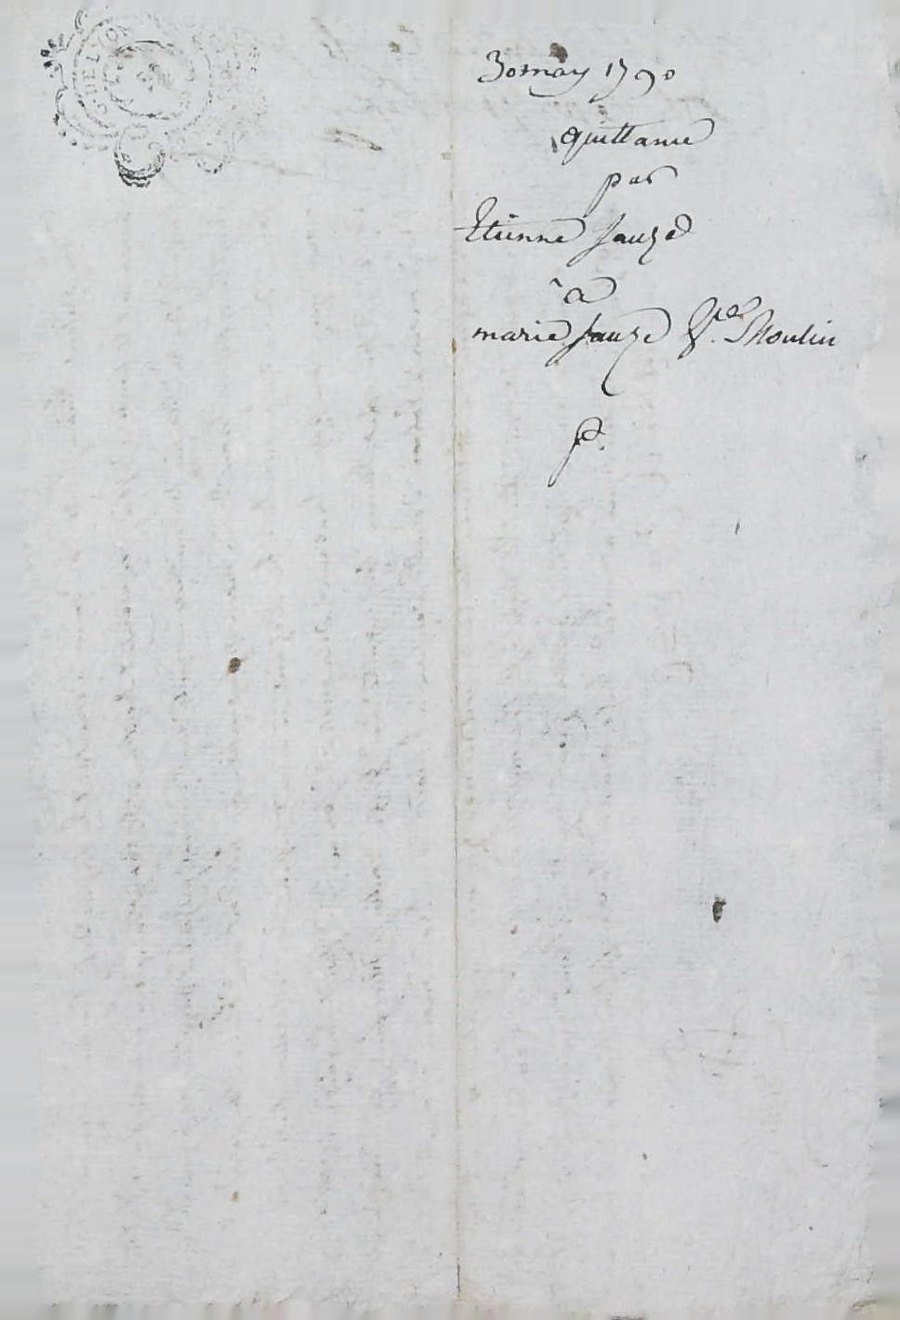 30 may 1790
quittance
par
Etienne Sauze
à
marie Sauze Ve. Moulin
p.